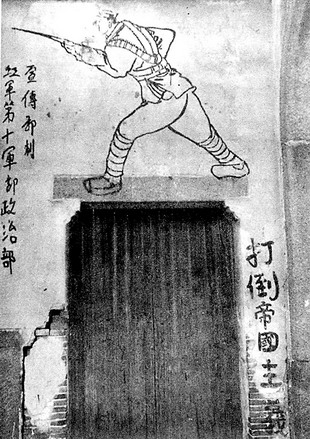 紅軍第十軍部政治部
宣傳部制
打倒帝國主義